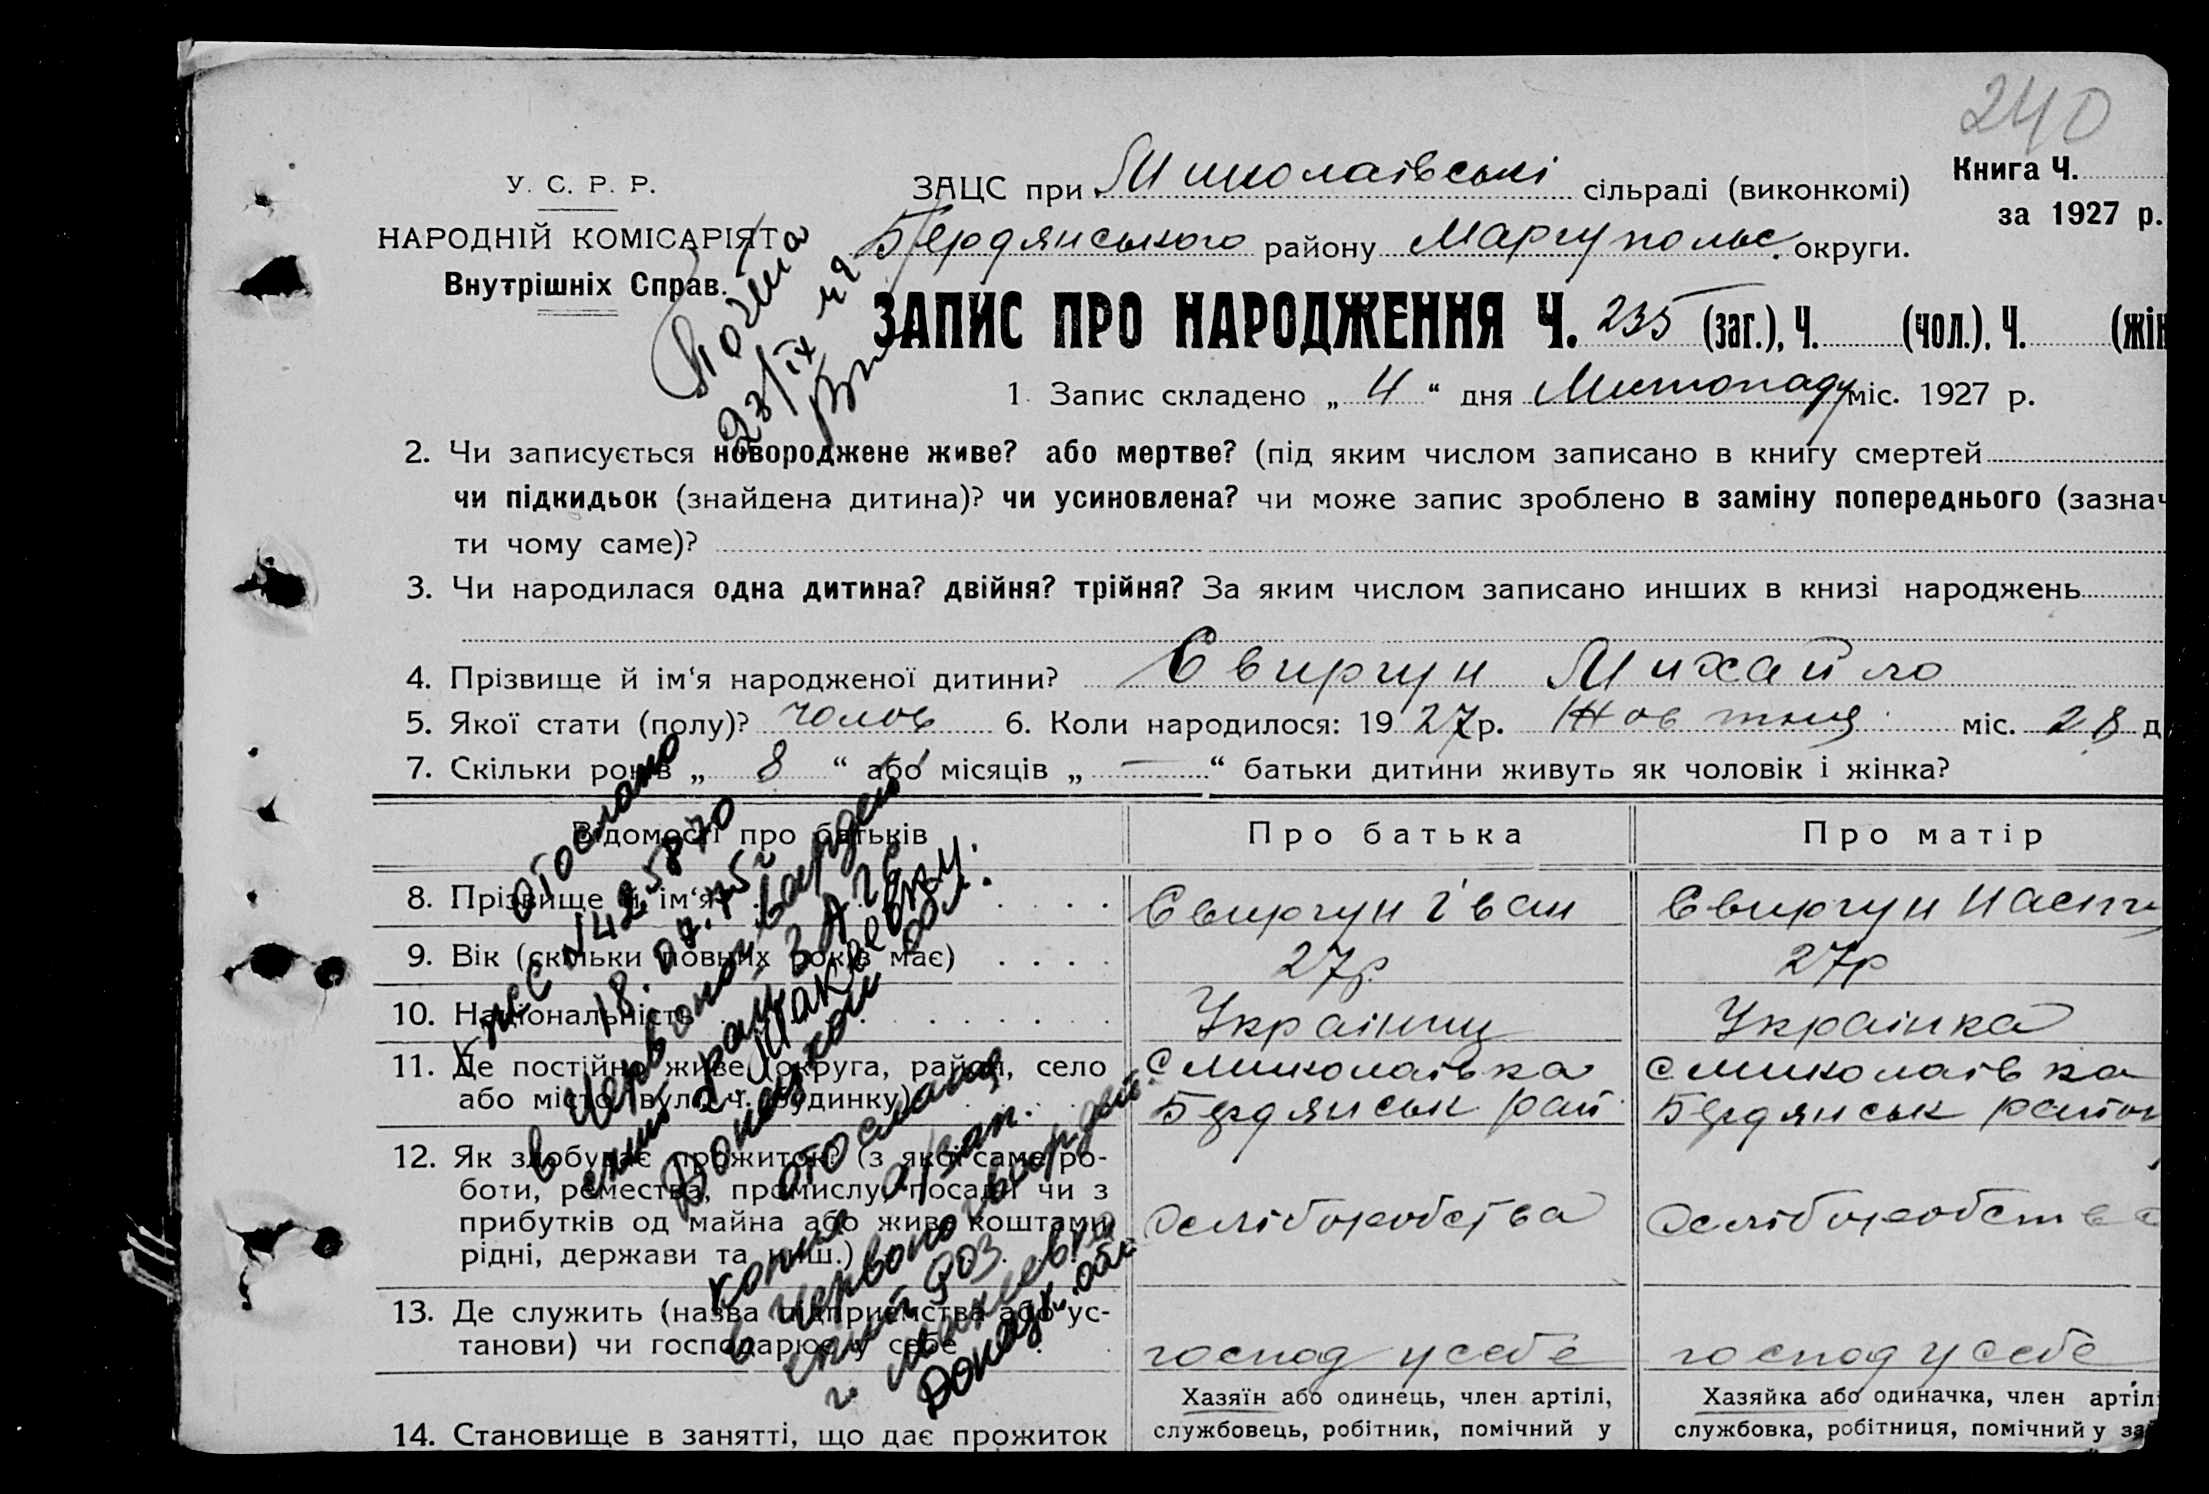 240
У. С. Р. Р.
НАРОДНІЙ КОМІСАРІЯТ
Внутрішніх Справ.
ЗАЦС при Миколаівські сільраді (виконкомі)
Книга Ч.
за 1927 р.
Бердянського району Маріупольс. округи.
ЗАПИС ПРО НАРОДЖЕННЯ Ч. 235 (заг.), Ч. (чол.). Ч. (жін
1. Запис складено „ 4 “ дня Листопаду міс. 1927 р.
2. Чи записується новороджене живе? або мертве? (під яким числом записано в книгу смертей
чи підкидьок (знайдена дитина)? чи усиновлена? чи може запис зроблено в заміну попереднього (зазнач
ти чому саме)?
3. Чи народилася одна дитина? двійня? трійня? За яким числом записано инших в книзі народжень
4. Прізвище й ім‘я народженої дитини? Євиргун Михайло
5. Якої стати (полу)? чолов 6. Коли народилося: 19 27 р. Жовтня міс. 28 д
7. Скільки років „ 8 “ або місяців „ — “ батьки дитини живуть як чоловік і жінка?
Відомості про батьків
Про батька
Про матір
8. Прізвище й ім‘я
Євиргун Іван
Євиргун Наст
9. Вік (скільки повних років має)
27р
27р
10. Національність
Украінец
Украінка
11. Де постійно живе (округа, район, село
або місто, вул., ч. будинку)
с Миколаівка
Бердянськ рай
с Миколаівка
Бердянськ район
12. Як здобуває прожиток? (з якої саме ро-
боти, ремества, промислу, посади чи з
прибутків од майна або живе коштами
рідні, держави та инш.)
Хліборобства
Хліборобства
13. Де служить (назва підприємства або ус-
танови) чи господарює у себе
господ у себе
господ у себе
14. Становище в занятті, що дає прожиток
Хазяїн або одинець, член артілі,
службовець, робітник, помічний у
Хазяйка або одиначка, член артіл
службовка, робітниця, помічний у за
23/IX
отослано
18.07.75г
в Червоногвардей
ский райЗАГС
г. Макеевку
Донецкой обл.
отослана
копия а/зап.
в Червоногвардей
ский РОЗ
г. Макеевка
Донецк. обл.